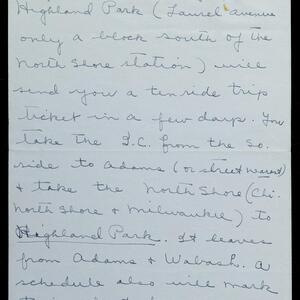 Highland Park (Laurel avenue
only a block south of the
North Shore station) will
send you a ten ride trip
ticket in a few days. You
take the I.C. from the So.
side to Adams (or street
& take the North Shore (Chi.
North Shore & Milwaukie) to
Highland Park. It leaves
from Adams & Wabash. A
schedule also will mark